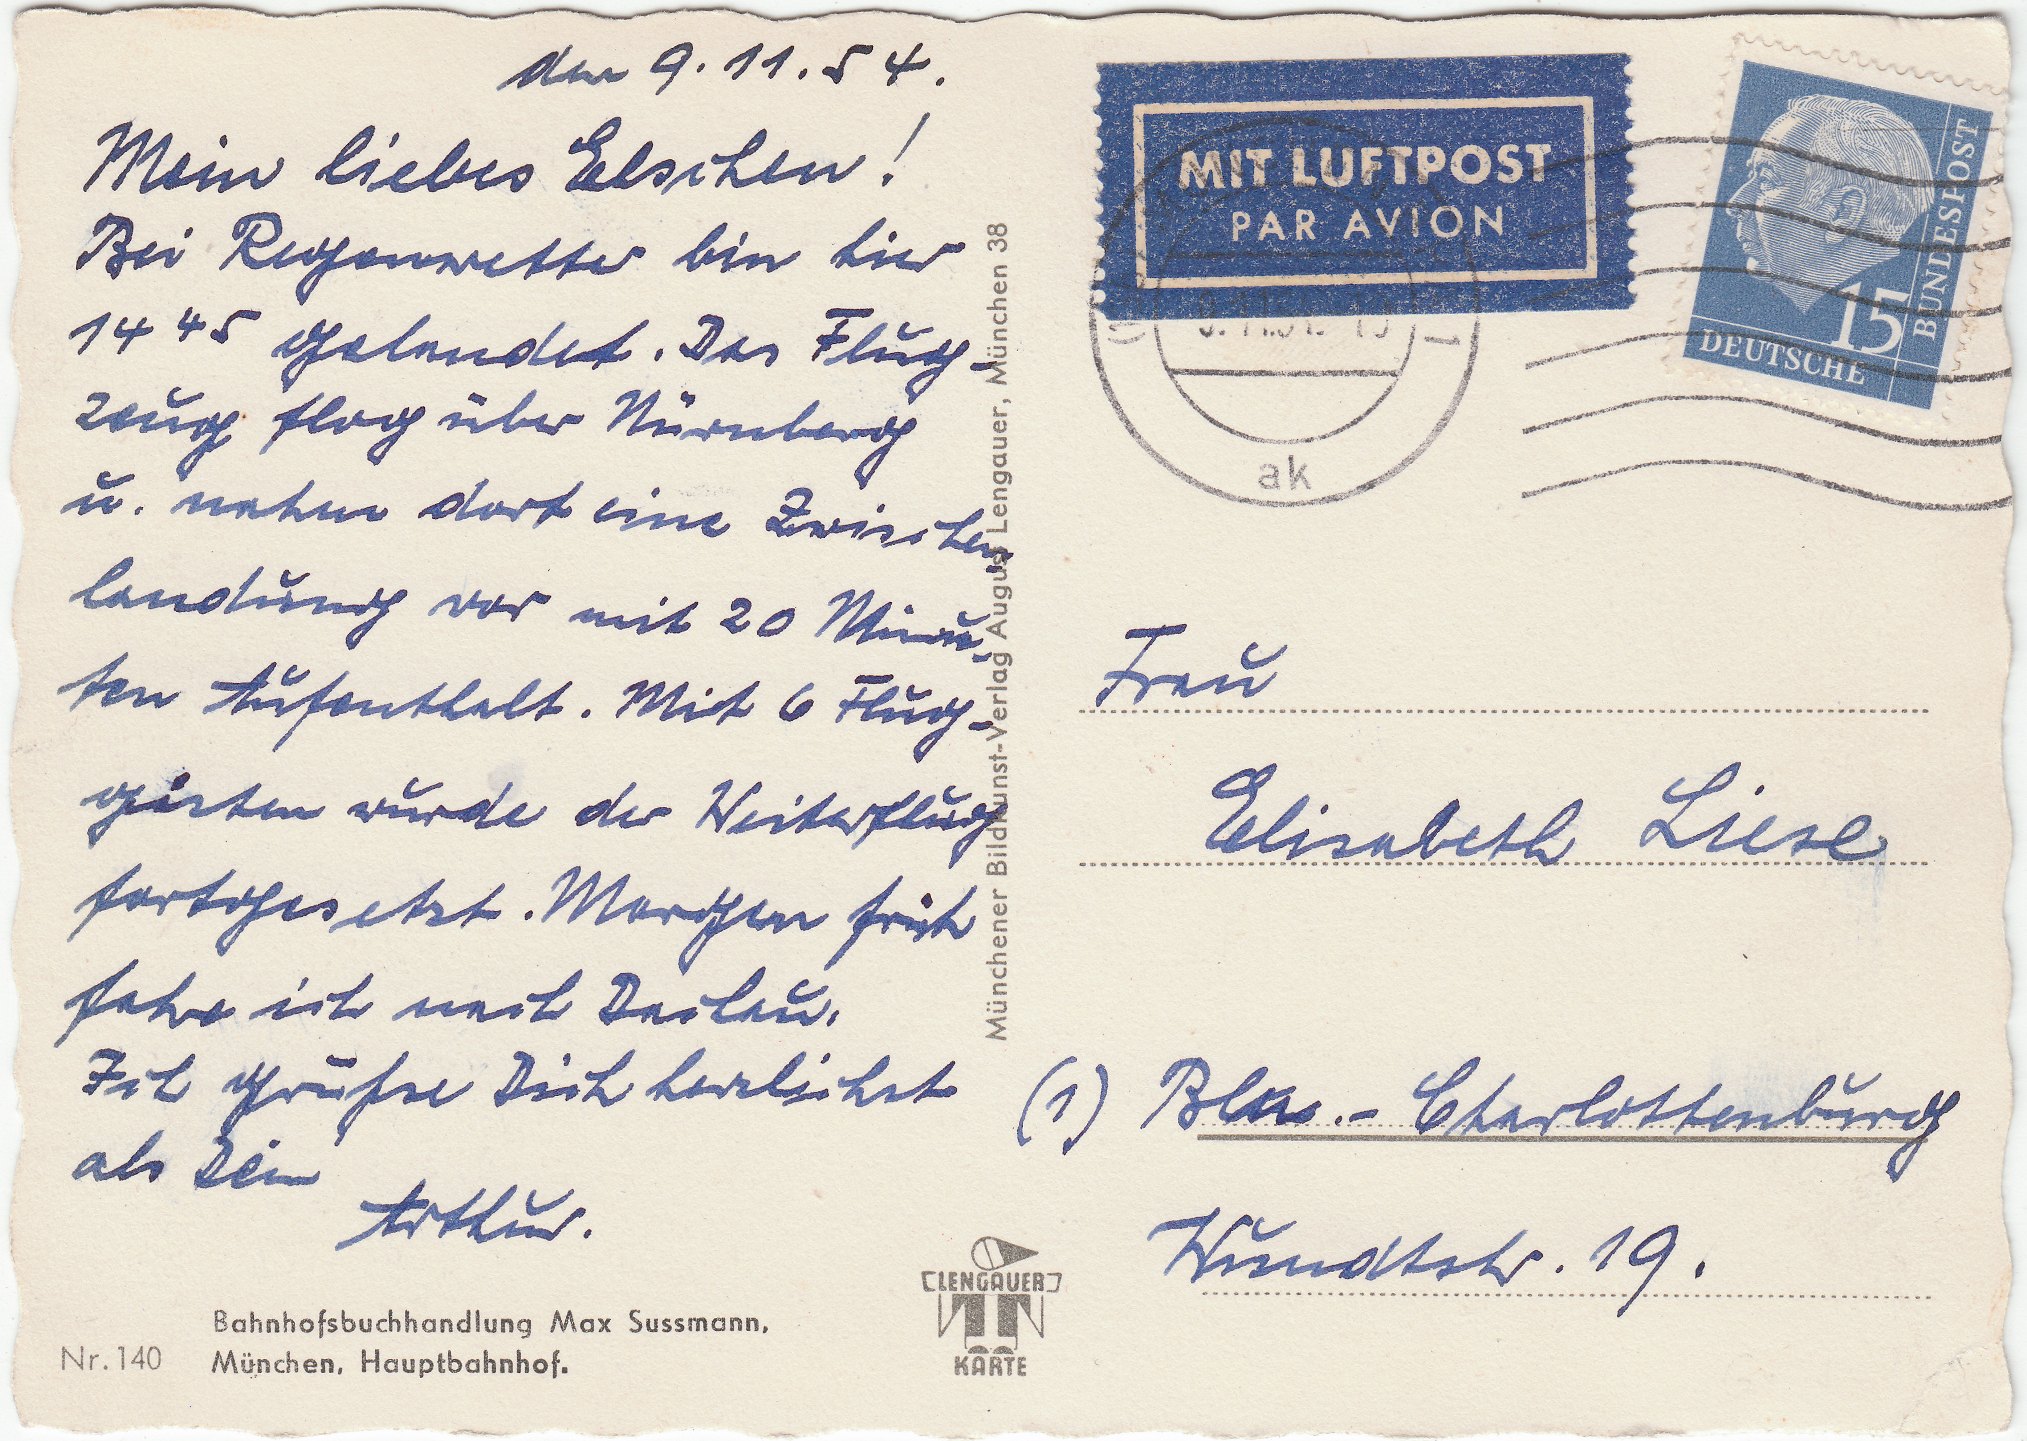 den 9.11.54.
Mein liebes Elschen!
Bei Regenwetter bin hier
14 45 gelandet. Das Flug-
zeug flog über Nürnberg
u. nahm dort eine Zwischen-
landung vor mit 20 Minu-
ten Aufenthalt. Mit 6 Flug-
gästen wurde der Weiterflug
fortgesetzt. Morgen früh
fahre ich nach Dachau.
Ich grüße Dich herzlichst
als Dein
Arthur.
Bahnhofsbuchhandlung Max Sussmann,
Nr. 140 München, Hauptbahnhof.
Münchener Bildkunst-Verlag August Lengauer, München 38
LENGAUER
KARTE
MIT LUFTPOST
PAR AVION
ak
15
DEUTSCHE
BUNDESPOST
Frau
Elisabeth Liese
(1) Bln.-Charlottenburg
Wundtstr. 19.